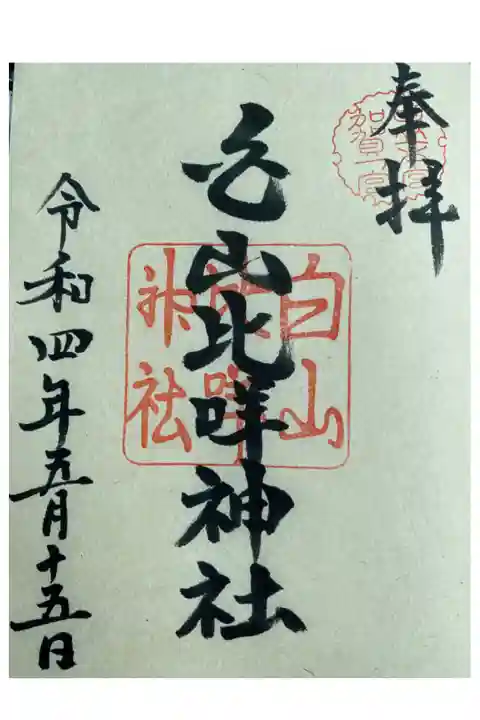 奉拝
白山比咩神社
令和四年五月十五日
白山
比咩
神社